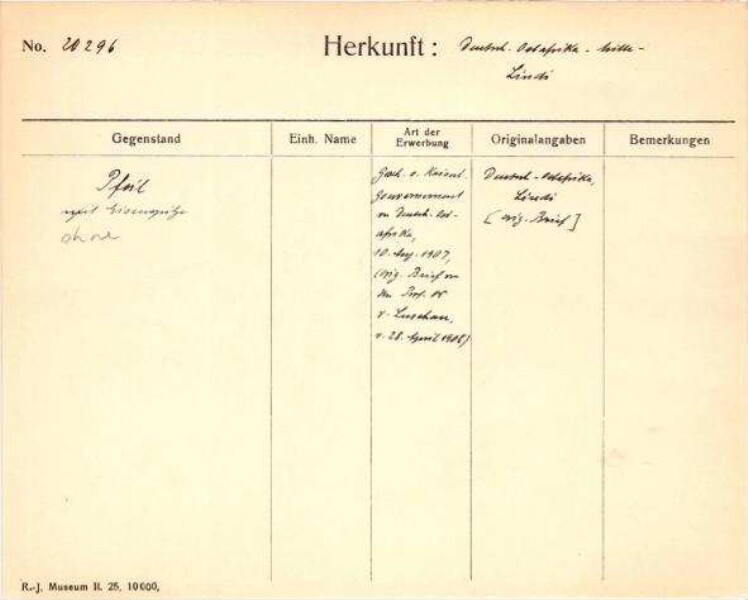 No. 20296
Herkunft: Deutsch. Ostafrika -
Lindi
Gegenstand
Einh. Name
Art der
Erwerbung
Originalangaben
Bemerkungen
Pfeil
mit Eisenspitze
ohne
Gesch. v. Kaiserl.
Gouvernement
von Deutsch. Ost-
afrika,
10. Aug. 1907,
(orig. Brief von
Prof. Dr
v. Luschan,
v. 28. April 1908)
Deutsch-Ostafrika,
Lindi
[orig. Brief]
R.-J. Museum II. 25, 10000,